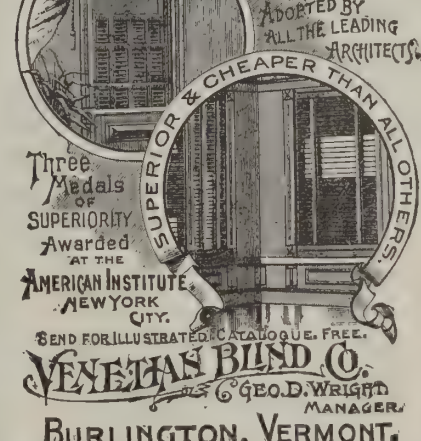 ADOPTED BY
ALL THE LEADING
ARCHITECTS.
SUPERIOR & CHEAPER THAN ALL OTHERS.
Three
Medals
OF
SUPERIORITY
Awarded
AT THE
AMERICAN INSTITUTE
NEW YORK
CITY.
SEND FOR ILLUSTRATED CATALOGUE. FREE.
VENETIAN BLIND CO.
GEO. D. WRIGHT
MANAGER.
BURLINGTON, VERMONT.